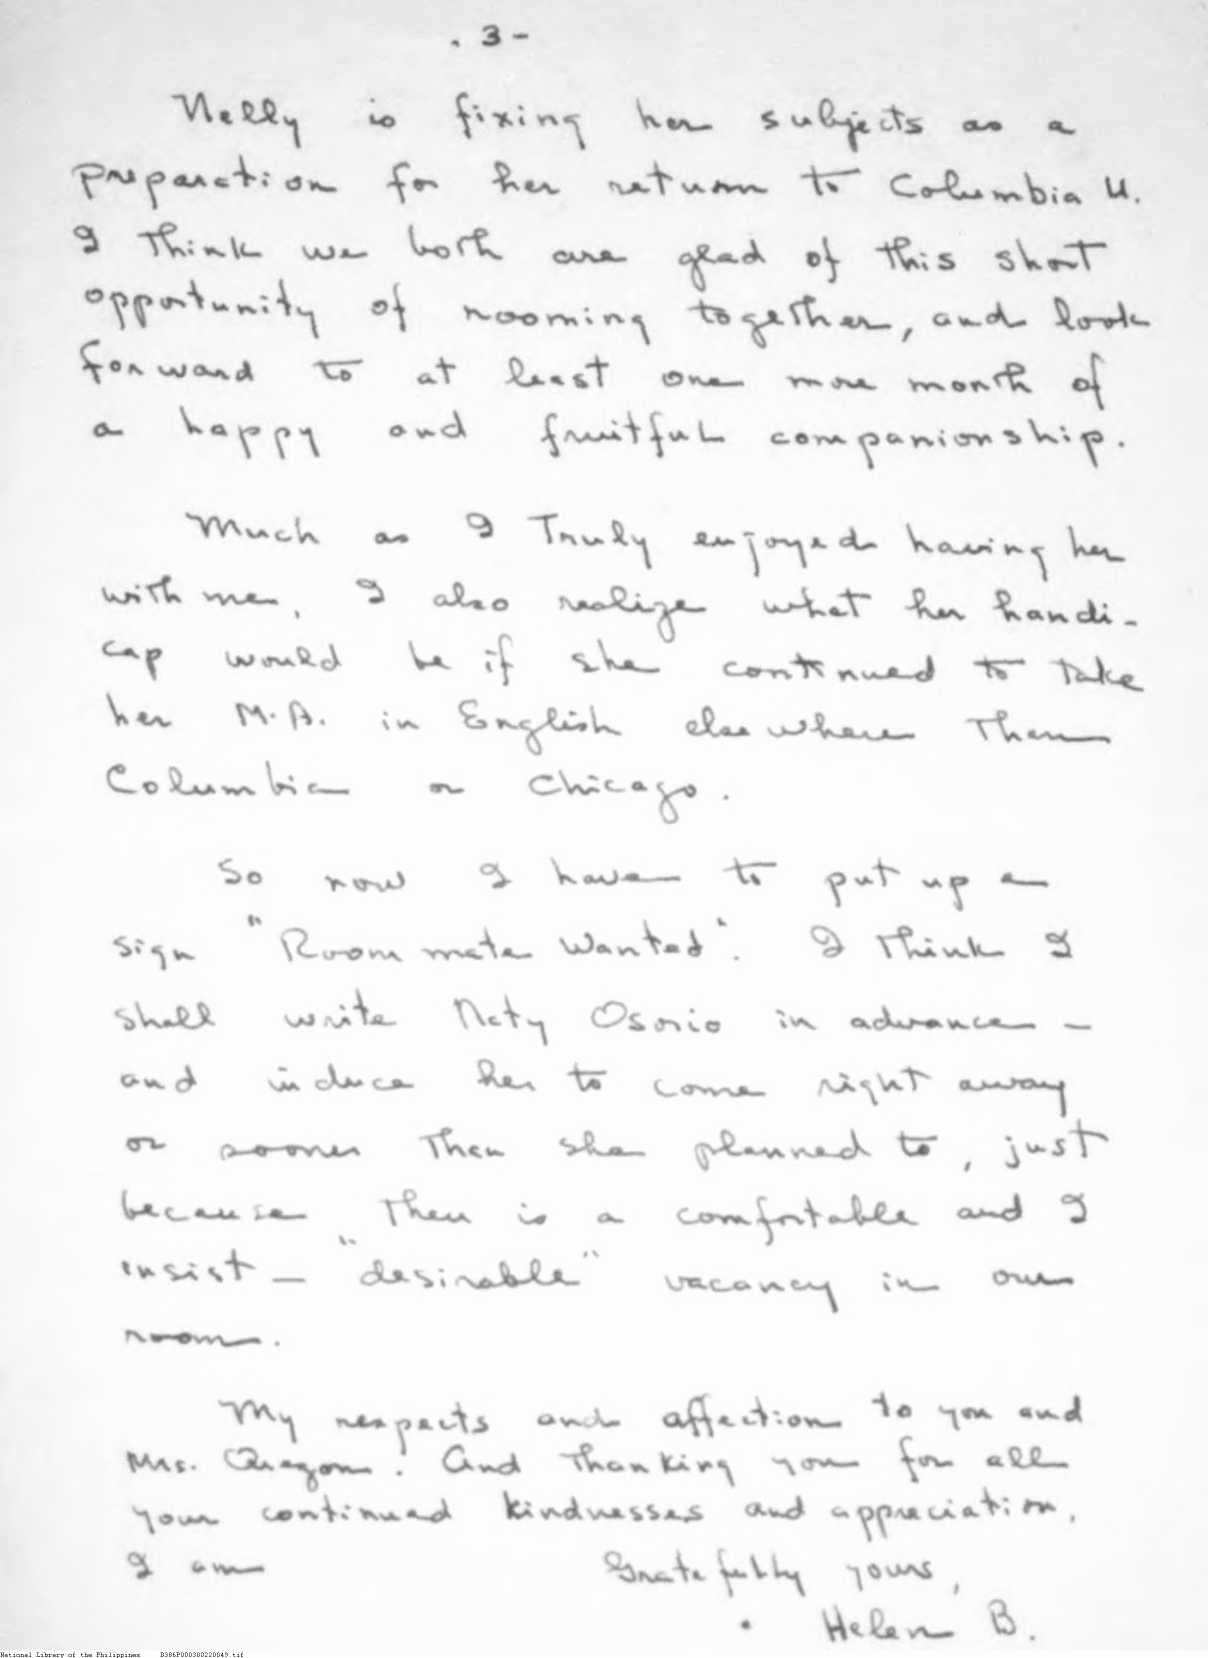 . 3 -
Nelly is fixing her subjects as a
preparation for her return to Columbia U.
I think we both are glad of this short
opportunity of rooming together, and look
forward to at least one more month of
a happy and fruitful companionship.
Much as I truly enjoyed having her
with me, I also realize what her handi-
cap would be if she continued to take
her M.A. in English elsewhere than
Columbia or Chicago.
So now I have to put up a
sign "Room mate Wanted". I think I
shall write Naty Osorio in advance -
and induce her to come right away
or sooner than she planned to, just
because there is a comfortable and I
insist - "desirable" vacancy in our
room.
My respects and affection to you and
Mrs. Aragon. And thanking you for all
your continued kindnesses and appreciation,
I am Gratefully yours,
Helen B.
National Library of the Philippines B386P000380220049.tif